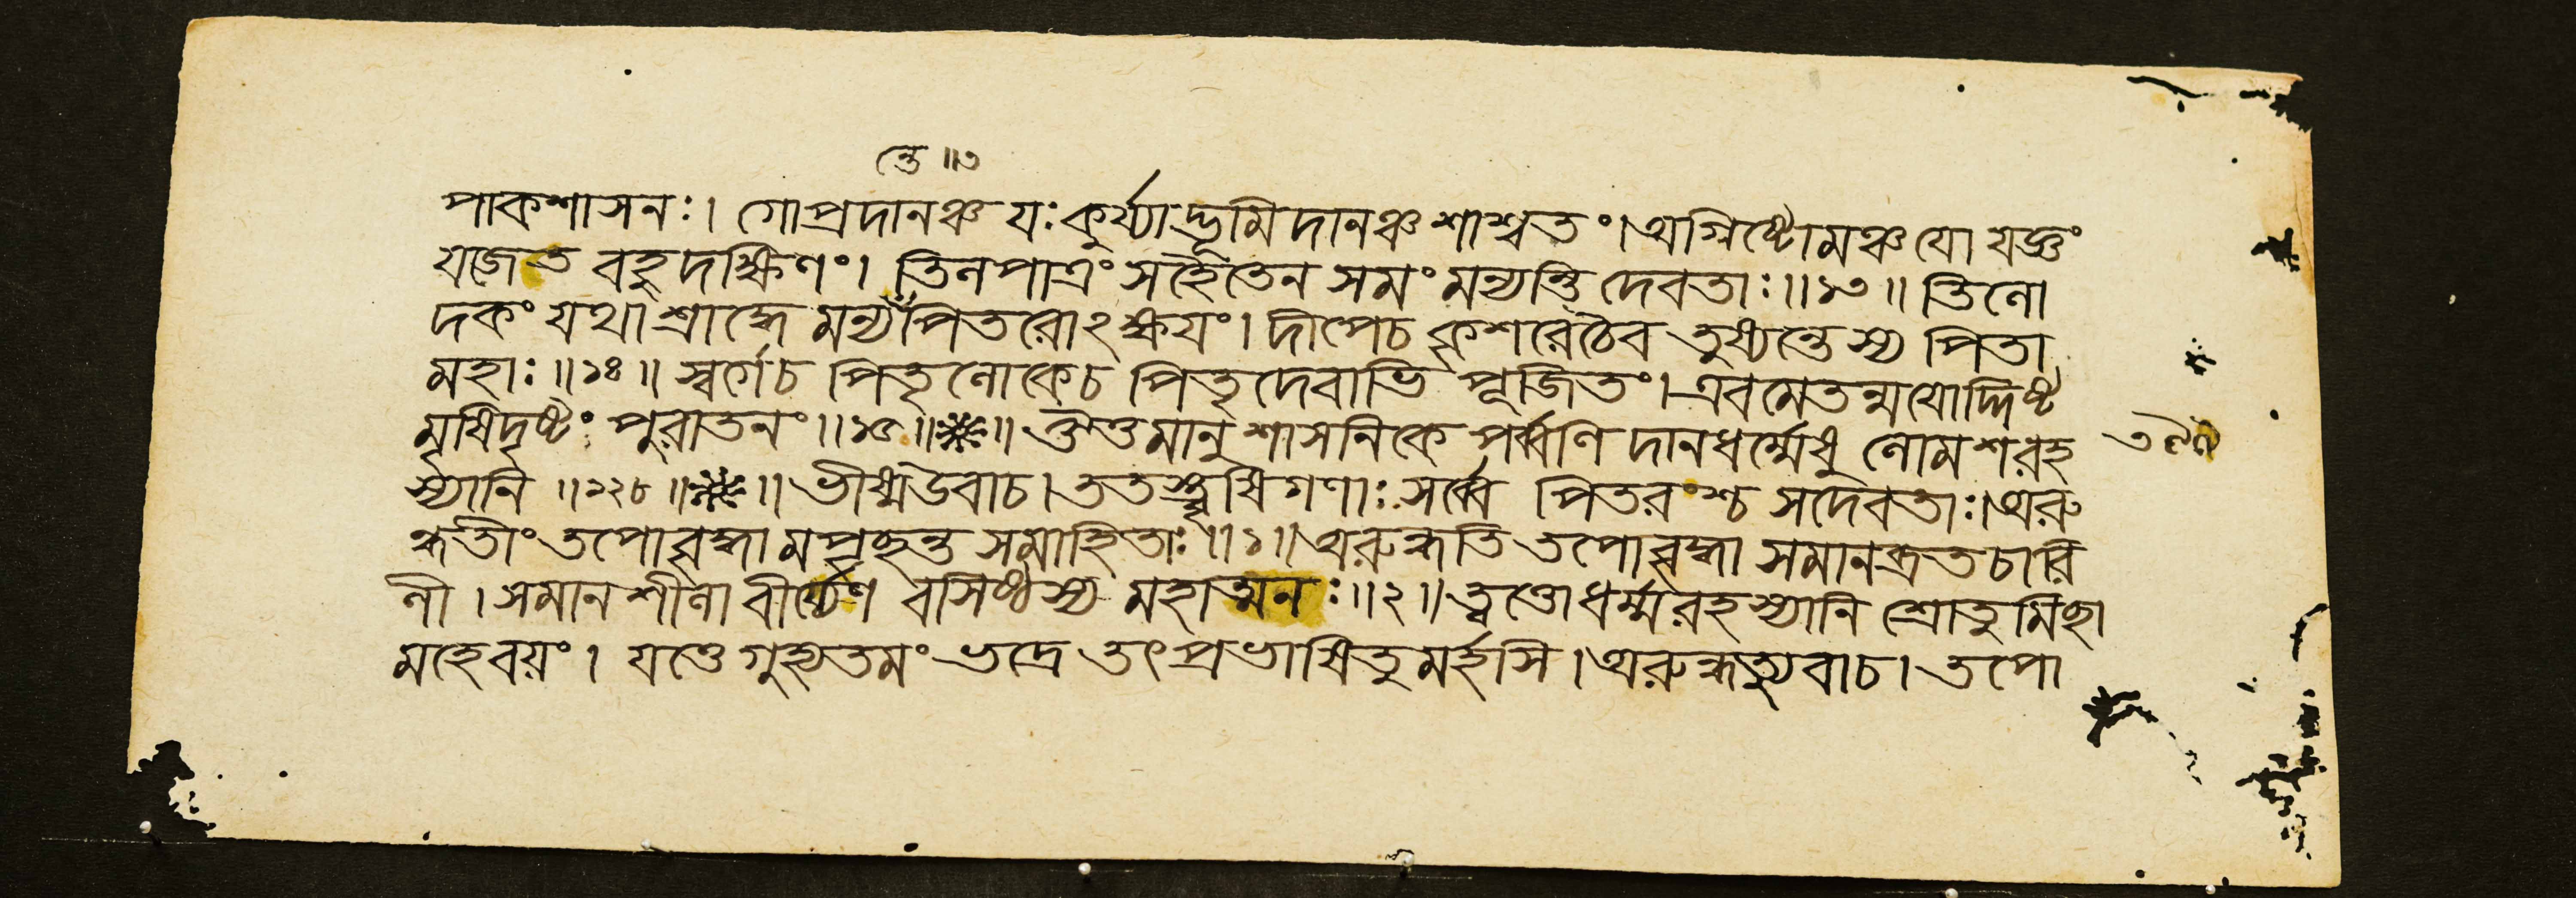 ন্তে ॥৩
পাকশাসনঃ। গোপ্রদানঞ্চ যঃ কুর্য্যাদ্ভূমিদানঞ্চ শাশ্বতং। অগ্নিষ্টোমঞ্চ যো যজ্ঞং
যজেত বহুদক্ষিণং। তিলপাত্রং সহৈতেন সমং মন্যন্তি দেবতাঃ॥১৩॥ তিলো
দকং যথা শ্রাদ্ধে মন্য পিতরোঽক্ষয়ং। দীপেচ কৃশরেচৈব তুষ্যন্তেস্য পিতা
মহাঃ॥১৪॥ স্বর্গেচ পিতৃলোকেচ পিতৃদেবাভি পূজিতং। এবমেতন্ময়োদ্দিষ্ট
মৃষিদৃষ্টং পুরাতনং॥১৫॥ ॥ মানুশাসনিকে পর্ব্বণি দানধর্ম্মেষু লোমশরহ
স্যানি ॥১২৮॥ ॥ ভীষ্মউবাচ। ততস্ত্বৃষিগণাঃ সর্ব্বে পিতরংশ্চ সদেবতাঃ। অরু
ন্ধতীং তপোবৃদ্ধা মপৃছন্ত সমাহিতাঃ॥১॥ অরুন্ধতি তপোবৃদ্ধা সমানব্রতচারি
ণী। সমানশীলা বীর্য্যেণ বসিষ্ঠস্য মহাত্মনঃ॥২॥ ত্বত্তোধর্ম্মরহস্যানি শ্রোতুমিছা
মহেবয়ং। যত্তে গুহ্যতমং ভদ্রে তৎপ্রভাষিতুমর্হসি। অরুন্ধত্যুবাচ। তপো